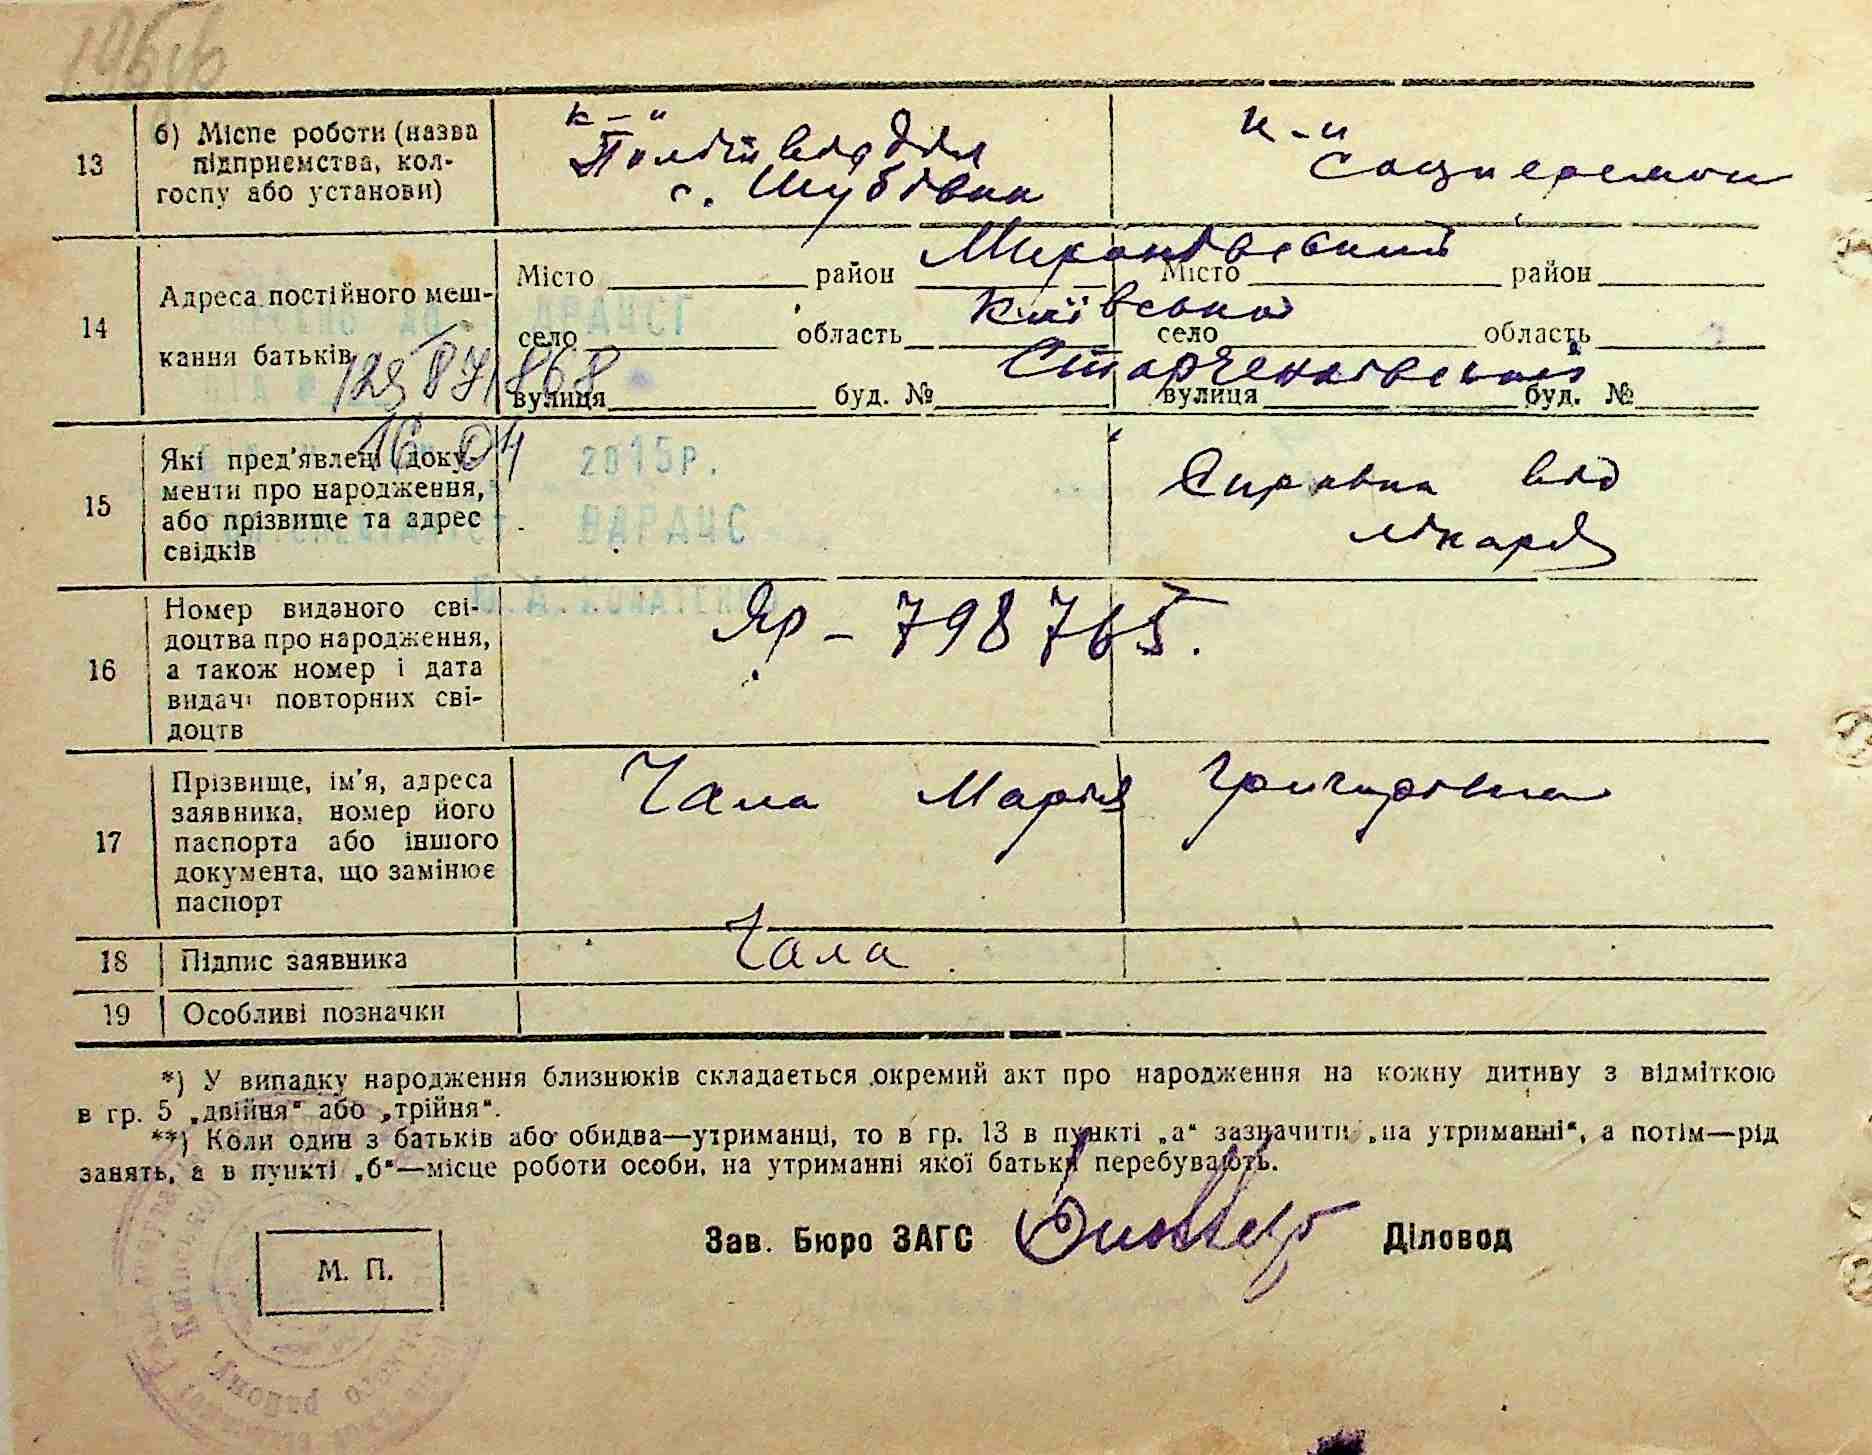 13
б) Місце роботи (назва
підприємства, кол-
госпу або установи)
к-п
Політвідділ
с. Шубівка
к-п
14
Адреса постійного меш-
кання батьків
Місто район Миронівський
Місто район
село область Київська
село область
вулиця буд. №
вулиця буд. №
12587868
16 04
2015р.
ДРАЦС
15
Які пред'явлені доку-
менти про народження,
або прізвище та адрес
свідків
Справка від
лікаря
16
Номер виданого сві-
доцтва про народження,
а також номер і дата
видачі повторних сві-
доцтв
Яр - 798765.
17
Прізвище, ім'я, адреса
заявника, номер його
паспорта або іншого
документа, що замінює
паспорт
Чала Марія Григорівна
18
Підпис заявника
Чала
19
Особливі позначки
*) У випадку народження близнюків складається окремий акт про народження на кожну дитину з відміткою
в гр. 5 „двійня" або „трійня".
**) Коли один з батьків або обидва—утриманці, то в гр. 13 в пункті „а" зазначити „на утриманні", а потім—рід
занять, а в пункті „б"—місце роботи особи, на утриманні якої батьки перебувають.
М. П.
Зав. Бюро ЗАГС
Діловод